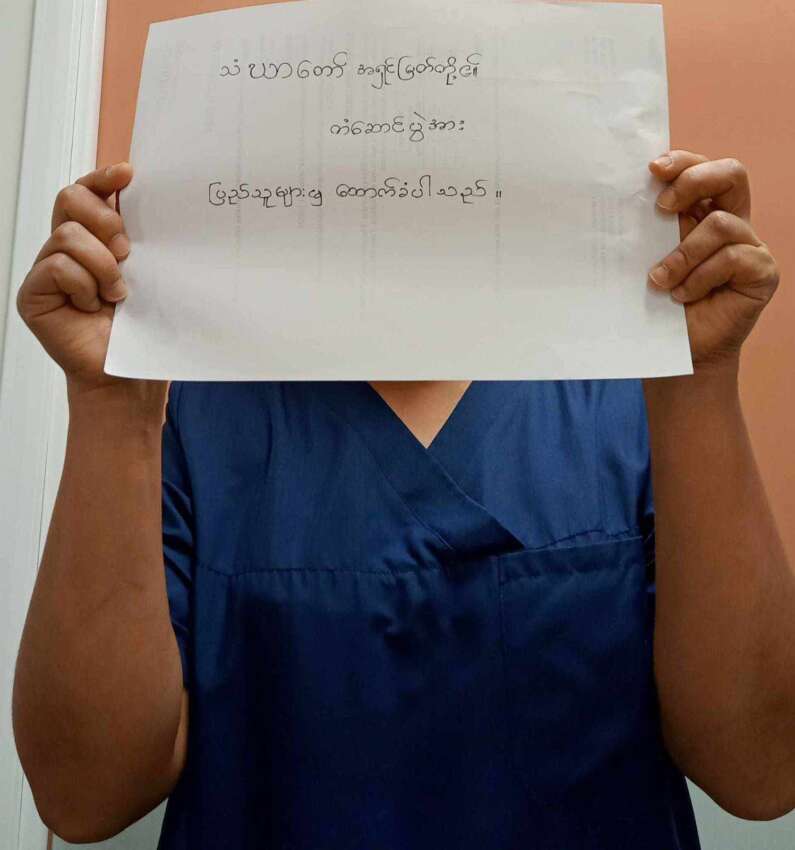 သံဃာတော် အရှင်မြတ်တို့၏
ကံဆောင်ပွဲအား
ပြည်သူများမှ ထောက်ခံပါသည်။